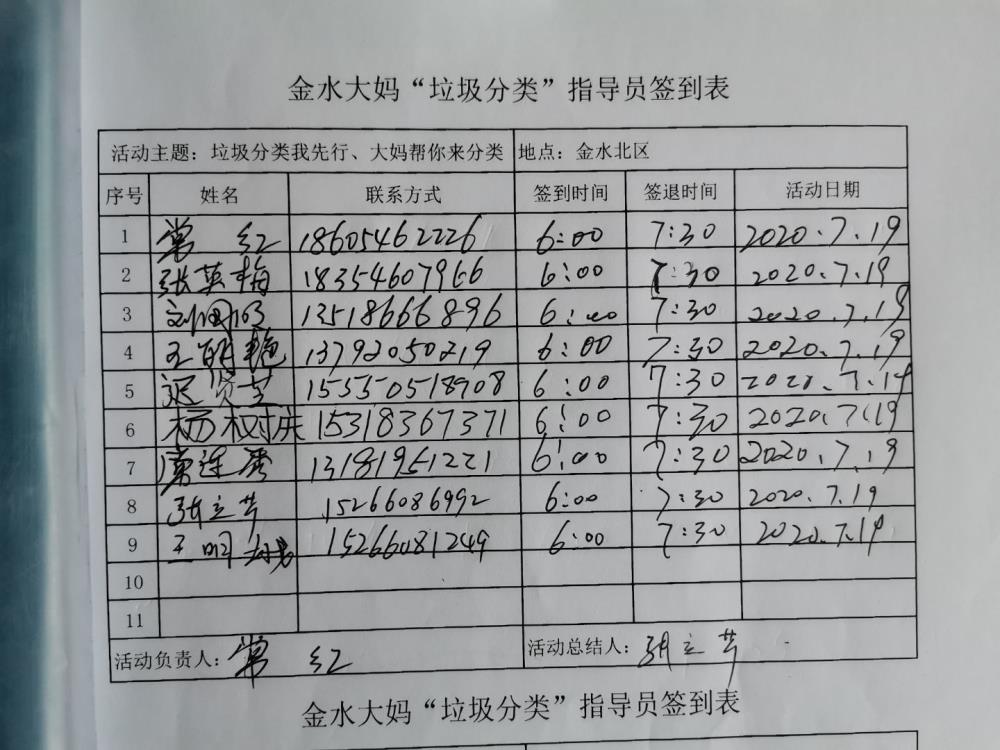 金水大妈“垃圾分类”指导员签到表
活动主题：垃圾分类我先行、大妈帮你来分类 地点：金水北区
序号 姓名 联系方式 签到时间 签退时间 活动日期
1 常红 18605462226 6:00 7:30 2020.7.19
2 张英梅 18354607966 6:00 7:30 2020.7.19
3 13518666896 6:00 7:30 2020.7.19
4 王明艳 13792050219 6:00 7:30 2020.7.19
5 迟贤芝 15550518908 6:00 7:30 2020.7.19
6 杨树庆 15318367371 6:00 7:30 2020.7.19
7 13181951221 6:00 7:30 2020.7.19
8 张立芹 15266086992 6:00 7:30 2020.7.19
9 15266081249 6:00 7:30 2020.7.19
10
11
活动负责人：常红 活动总结人：张立芹
金水大妈“垃圾分类”指导员签到表